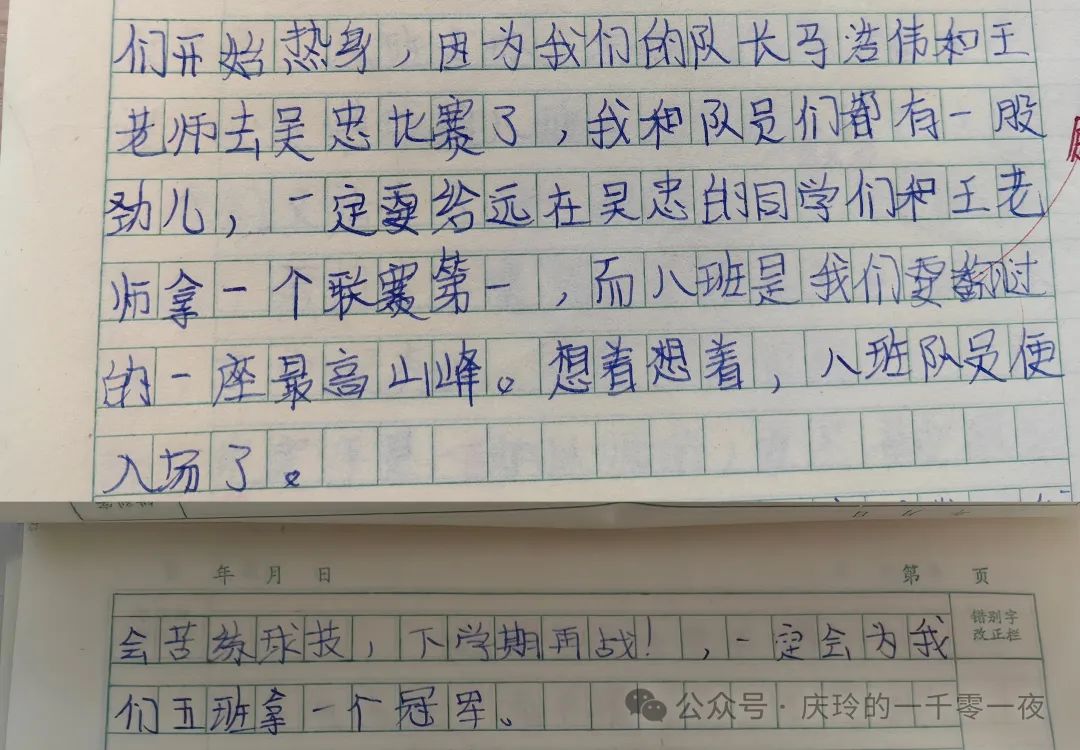 们开始热身，因为我们的队长马浩伟和王
老师去吴忠比赛了，我和队员们都有一股
劲儿，一定要给远在吴忠的同学们和王老
师拿一个联赛第一，而八班是我们要翻过
的一座最高山峰。想着想着，八班队员便
入场了。
年 月 日 第 页
错别字
改正栏
会苦练球技，下学期再战！，一定会为我
们五班拿一个冠军。
公众号·庆玲的一千零一夜